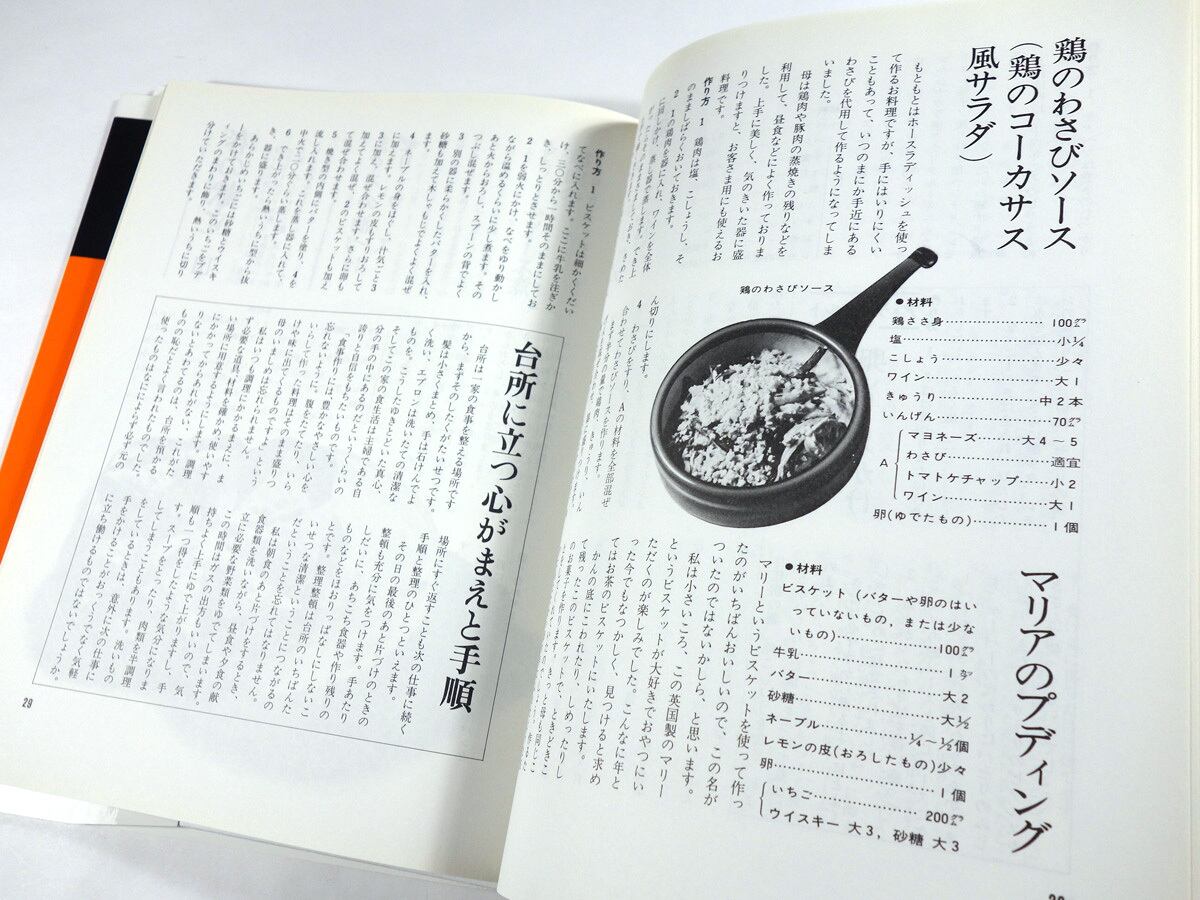 鶏のわさびソース
（鶏のコーカサス
風サラダ）
もともとはホースラディッシュを使っ
て作るお料理ですが、手にはいりにくい
こともあって、いつのまにか手近にある
わさびを代用して作るようになってしま
いました。
母は鶏肉や豚肉の蒸焼きの残りなどを
利用して、昼食などによく作っておりま
した。上手に美しく、気のきいた器に盛
りつけますと、お客さま用にも使えるお
料理です。
作り方 1 鶏肉は塩、こしょうし、そ
のまましばらくおいておきます。
2 1の鶏肉を器に入れ、ワインを全体
鶏のわさびソース
●材料
鶏ささ身 100㌘
塩 小¼
こしょう 少々
ワイン 大1
きゅうり 中2本
いんげん 70㌘
A
マヨネーズ 大4～5
わさび 適宜
トマトケチャップ 小2
ワイン 大1
卵(ゆでたもの) 1個
ん切りにします。
4 わさびをすり、Aの材料を全部混ぜ
合わせてわさびソースを作ります。
マリアのプディング
●材料
ビスケット (バターや卵のはい
っていないもの，または少な
いもの) 100㌘
牛乳 1㌍
バター 大2
砂糖 大½
ネーブル ¼～½個
レモンの皮(おろしたもの)少々
卵 1個
いちご 200㌘
ウイスキー 大3，砂糖 大3
マリーというビスケットを使って作っ
たのがいちばんおいしいので、この名が
ついたのではないかしら、と思います。
私は小さいころ、この英国製のマリー
というビスケットが大好きでおやつにい
ただくのが楽しみでした。こんなに年と
った今でもなつかしく、見つけると求め
てはお茶のビスケットにいたします。
かんの底にこわれたり、しめったりし
て残ったこのビスケットで、ときどきこ
のお菓子を作ります。
作り方 1 ビスケットは細かくくだい
てなべに入れます。ここに牛乳を注ぎか
け、三〇分から一時間そのままにしてお
き、しっとりとさせます。
2 1を弱火にかけ、なべをゆり動かし
ながら温めるくらいに少し煮ます。その
あと火からおろし、スプーンの背でよく
つぶし混ぜます。
3 別の器に柔らかくしたバターを入れ、
砂糖も加えて木しゃもじでよくよく混ぜ
ます。
4 ネーブルの身をほぐし、汁気ごと3
に加えます。レモンの皮もすりおろして
3に加え、混ぜ合わせます。
5 焼き型の内側にバターを塗り、4を
6 でき上がったら熱いうちに型から抜
き、器に盛ります。
あらかじめいちごには砂糖とウイスキ
ーをかけておきます。このいちごをプデ
ィングのまわりに飾り、熱いうちに切り
分けていただきます。
台所に立つ心がまえと手順
台所は一家の食事を整える場所です
から、まずそのしたくがたいせつです。
髪は小さくまとめ、手は石けんでよ
く洗い、エプロンは洗いたての清潔な
ものを。こうしたゆきとどいた真心、
そしてこの一家の食生活は主婦である自
分の手の中にあるのだという、
誇りと自信をもちたいものです。
「食事作りには、豊かなやさしい心を
忘れないように。腹をたてたり、いら
いらして作った料理はそのまま盛りつ
けや味に出てくるものですよ」という
母のいましめは忘れられません。
私はいつも調理にかかるまえに、ま
ず必要な道具、材料を確かめ、使いやす
い場所に用意するようにし、さま
にかかってからあれがない、これがた
りないとあわてるのは、台所を預かる
ものの恥だとよく言われたものでした。
使ったものはなにによらず必ず元の
場所にすぐ返すことも次の仕事に続く
手順と整理のひとつといえます。
その日の最後のあと片づけのときの
整頓も充分に気をつけます。手あたり
しだいに、あちこち食器や作り残りの
ものなどをほおりっぱなしにしないこ
とです。整理整頓は台所のいちばんた
いせつな清潔ということにつながるの
だということを忘れてはなりません。
私は朝食のあと片づけをするとき、
食器類を洗いながら、昼食や夕食の献
立に必要な野菜類をゆでてしまいます。
この時間はガスの出方もいいので、気
持ちよく上手にゆで上がりますし、手
順も一つ得をしたような気分になりま
す。スープをとったり、肉類を半調理
してしまうこともあります。洗いもの
をしているときは、意外に次のものに
手をかけることがおっくうでなく気軽
に立ち働けるものではないでしょうか。
29